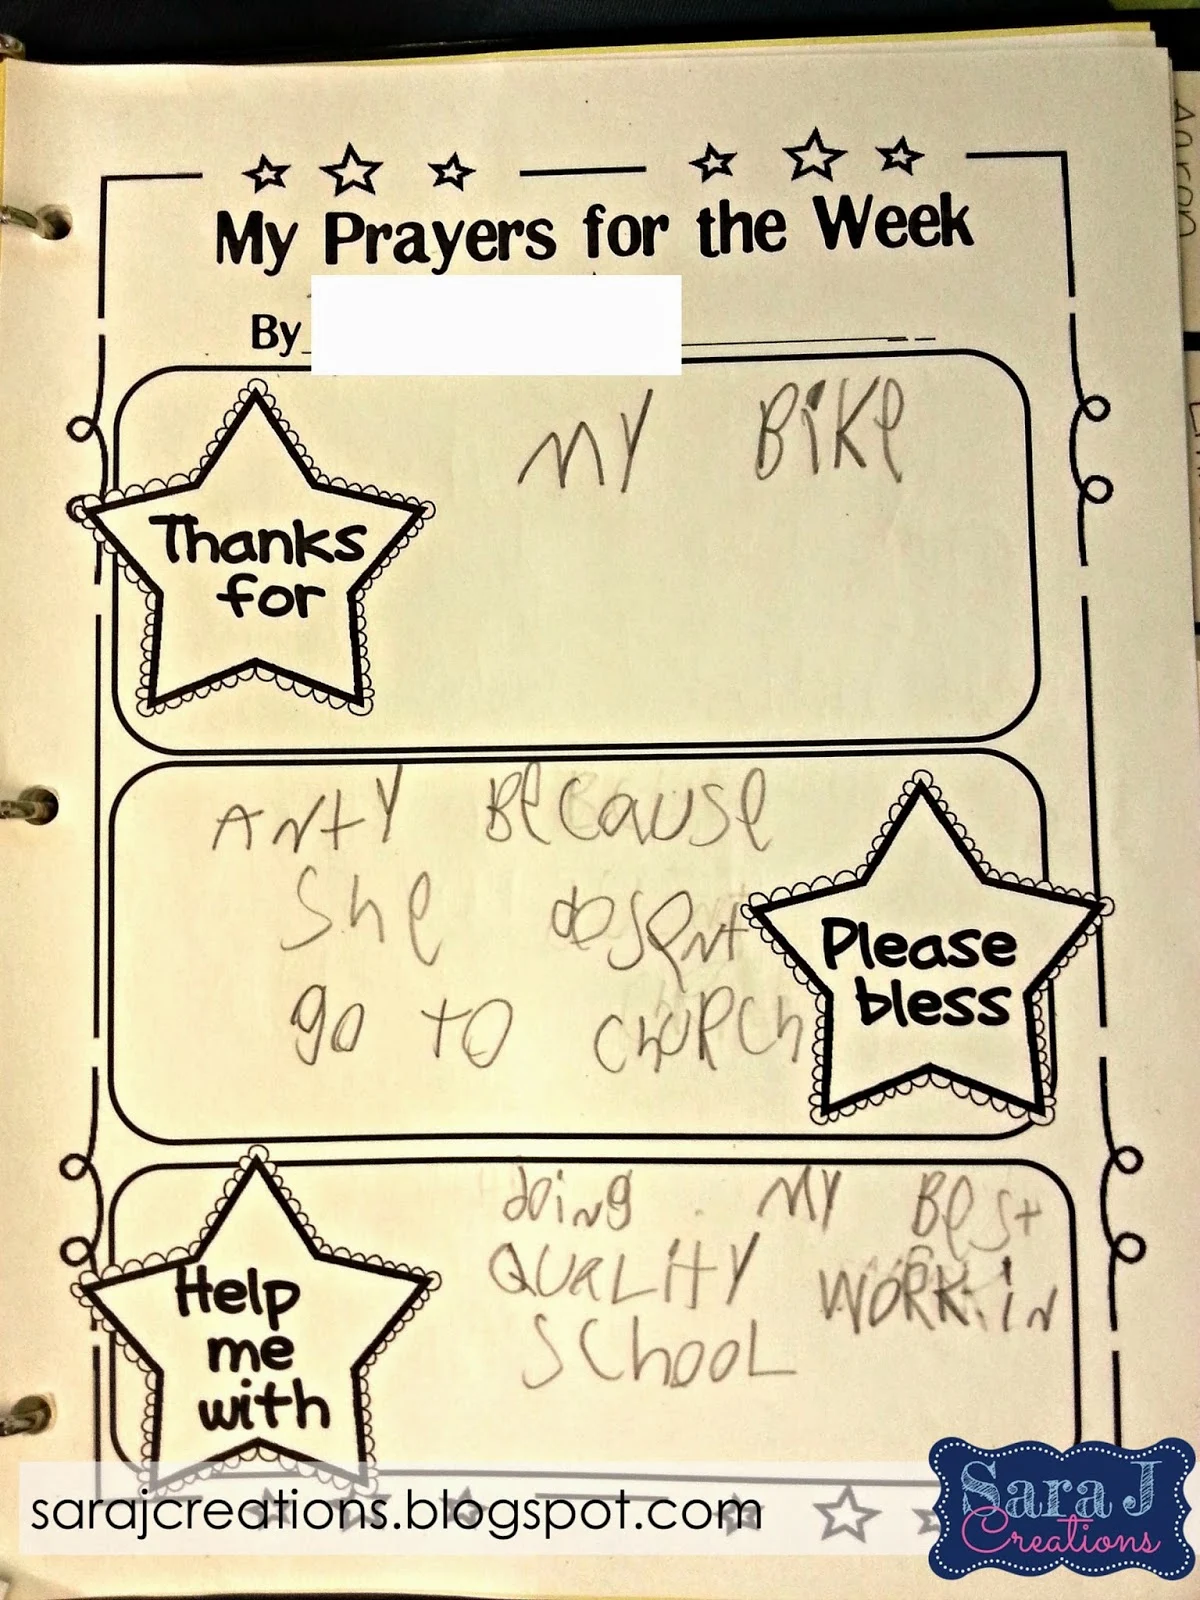 My Prayers for the Week
By
Thanks
for
MY BiKe
ANtY BeCause
She dosent
go to ChURCh
Please
bless
Help
me
with
doiNg MY BeSt
QUaLitY WORK iN
SChooL
sarajcreations.blogspot.com
Sara J
Creations